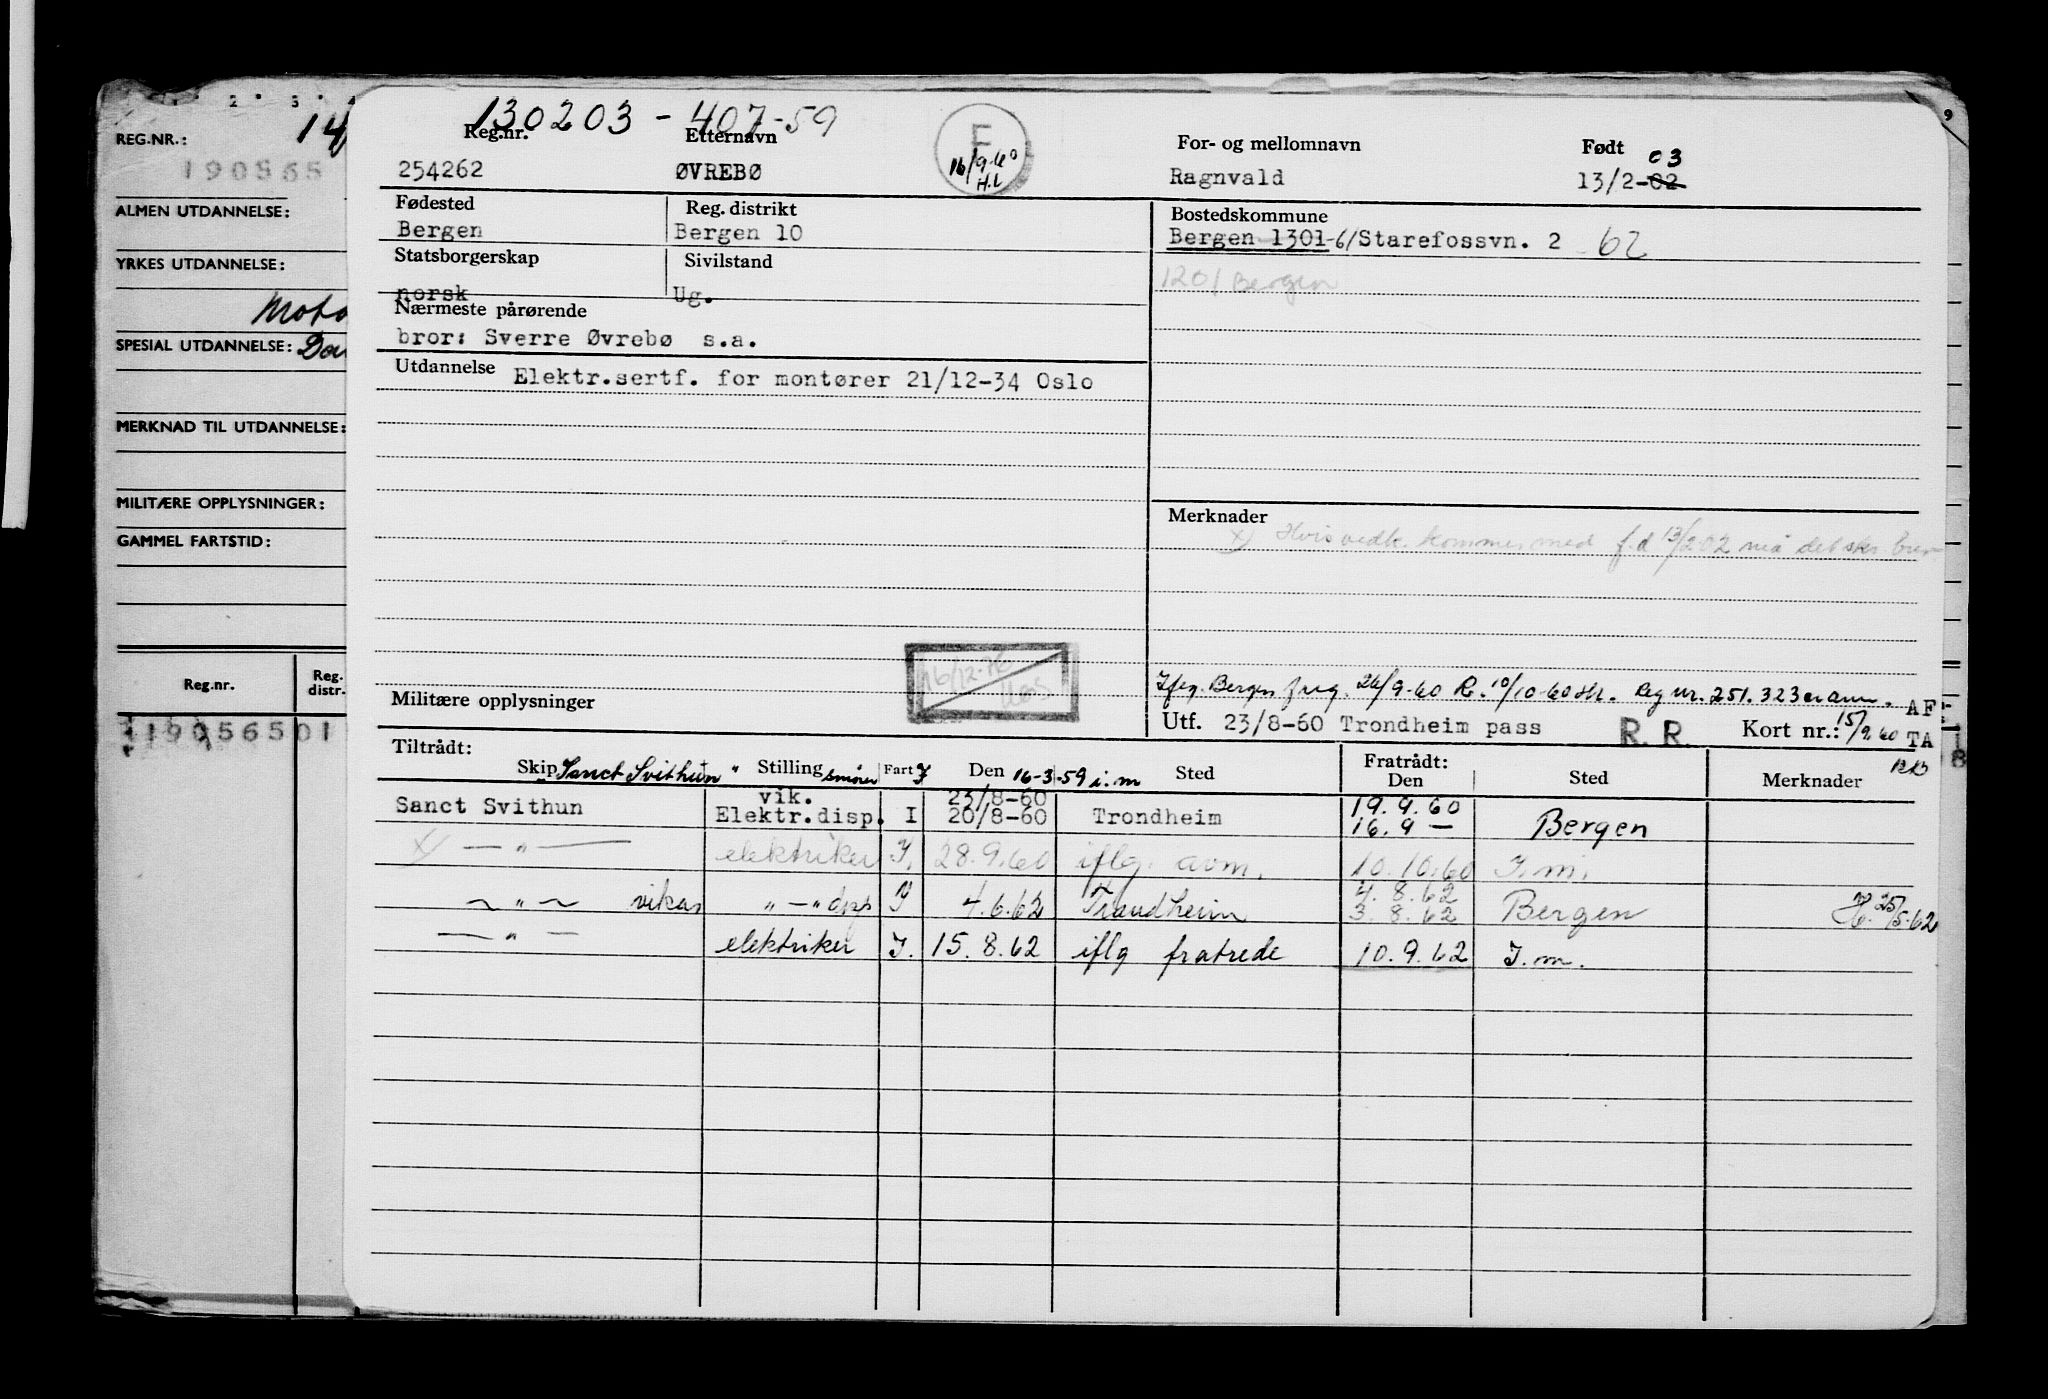 130203 - 407-59
Reg.nr. Etternavn For- og mellomnavn Født
254262 ØVREBØ Ragnvald 13/2-02 03
F
16/9-60
H.L
Fødested Reg. distrikt Bostedskommune
Bergen Bergen 10 Bergen 1301-61 Starefossvn. 2 62
Statsborgerskap Sivilstand
norsk Ug.
1201 Bergen
Nærmeste pårørende
bror: Sverre Øvrebø s.a.
Utdannelse Elektr.sertf. for montører 21/12-34 Oslo
Merknader
x) Hvis vedk. kommer med f.d 13/2 02 må det skr. brev
16/12-76
Militære opplysninger
Iflg. Bergen 26/9-60 R. 10/10-60 Reg nr. 251.323 er ann.
Utf. 23/8-60 Trondheim pass R. R. Kort nr.: 15/9.60
AF
TA
Tiltrådt: Fratrådt:
Skip Stilling Fart Den Sted Den Sted Merknader
"Sanct Svithun" smører I 16-3-59 i.m
Sanct Svithun vik. Elektr.disp. I 23/8-60 20/8-60 Trondheim 19.9.60 16.9 — Bergen
x) — " — elektriker I. 28.9.60 iflg. avm. 10.10.60 I.m.
— " — vikar " — " dsp I 4.6.62 Trondheim 4.8.62 3.8.62 Bergen 25/5.62
— " — elektriker I. 15.8.62 iflg fratrede 10.9.62 I.m.
REG.NR.: 14
190565
ALMEN UTDANNELSE:
YRKES UTDANNELSE:
Moto
SPESIAL UTDANNELSE:
MERKNAD TIL UTDANNELSE:
MILITÆRE OPPLYSNINGER:
GAMMEL FARTSTID:
Reg.nr. Reg. distr.
19056501
9
8